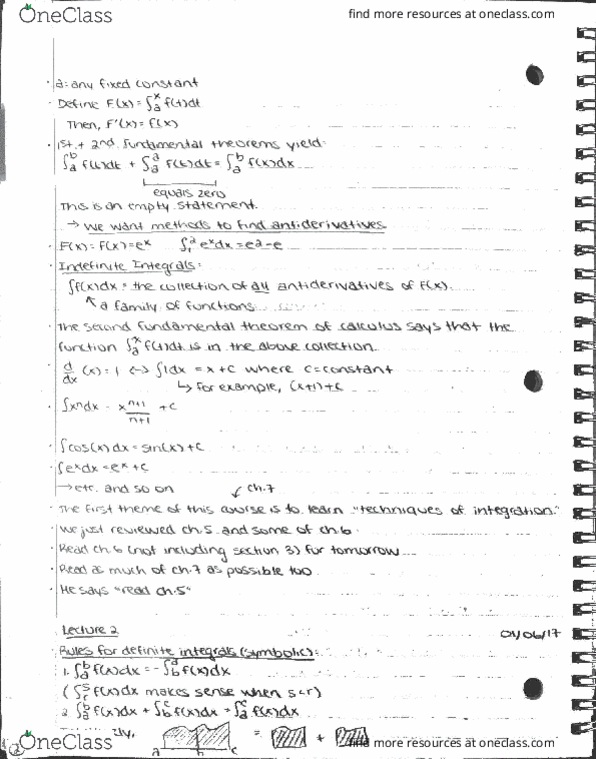 OneClass
find more resources at oneclass.com
· a: any fixed constant
· Define F(x) = ∫ₐˣ f(t)dt
Then, F'(x) = f(x)
· 1st + 2nd fundamental theorems yield:
∫ₐᵇ f(t)dt + ∫ₐᵃ f(t)dt = ∫ₐᵇ f(x)dx
equals zero
This is an empty statement.
→ We want methods to find antiderivatives
· F(x) = f(x) = eˣ ∫₁² eˣdx = e² - e
· Indefinite Integrals:
∫f(x)dx = the collection of all antiderivatives of f(x).
a family of functions
· The second fundamental theorem of calculus says that the
function ∫ₐˣ f(t)dt is in the above collection
· d/dx (x) = 1 ↔ ∫1dx = x + c where c = constant
↳ For example, (x+1)+c
· ∫xⁿdx = xⁿ⁺¹/n+1 + c
· ∫cos(x)dx = sin(x) + c
· ∫eˣdx = eˣ + c
→ etc. and so on
ch.7
· The first theme of this course is to learn "techniques of integration."
· We just reviewed ch.5 and some of ch.6
· Read ch.6 (not including section 3) for tomorrow
· Read as much of ch.7 as possible too
· He says "read ch.5"
Lecture 2 01/06/17
Rules for definite integrals (symbolic):
1. ∫ₐᵇ f(x)dx = -∫ᵇₐ f(x)dx
( ∫ f(x)dx makes sense when s<r)
2. ∫ₐᵇ f(x)dx + ∫ᵇᶜ f(x)dx = ∫ₐᶜ f(x)dx
a b c = +
OneClass
find more resources at oneclass.com